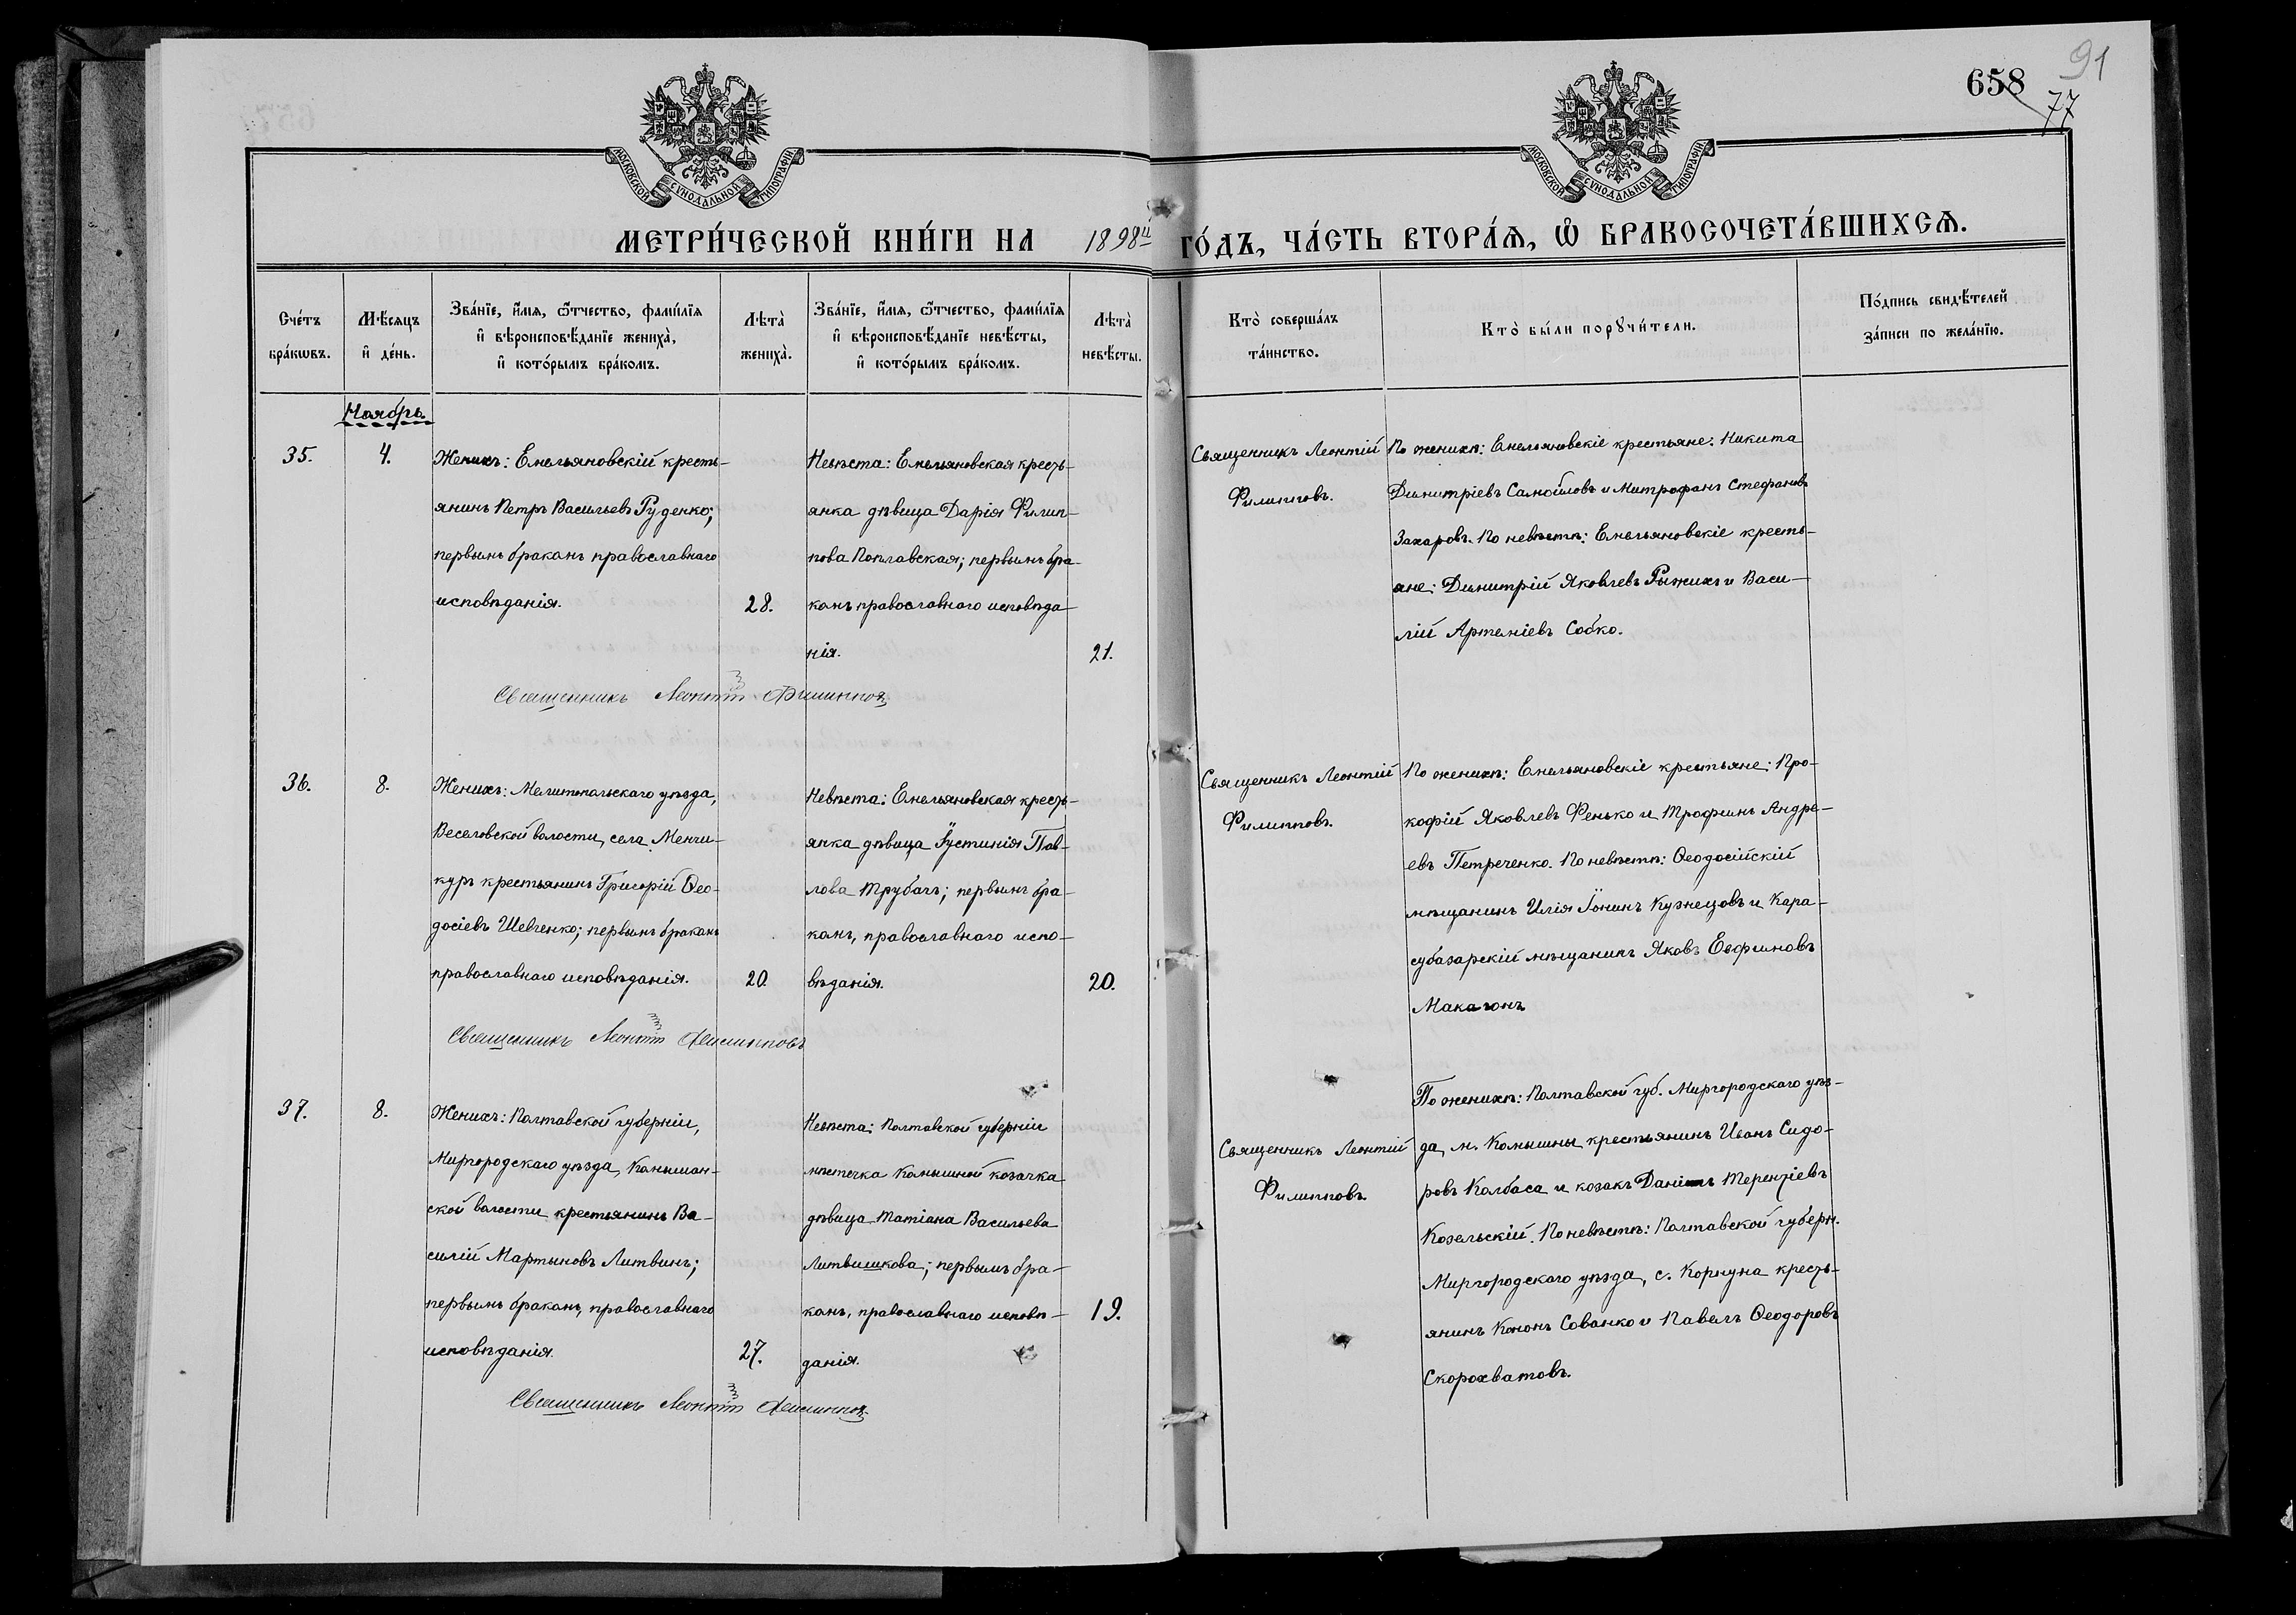 91
658
77
МОСКОВСКОЙ СѴНОДАЛЬНОЙ ТИПОГРАФІИ
МОСКОВСКОЙ СѴНОДАЛЬНОЙ ТИПОГРАФІИ
МЕТРИ́ЧЕСКОЙ КНИ́ГИ НА 1898й ГО́ДЪ, ЧА́СТЬ ВТОРА́Ѧ, Ѽ БРАКОСОЧЕТА́ВШИХСѦ.
Сче́тъ бра́кѡвъ.
Мѣ́сѧцъ и҆ де́нь.
Зва́нїе, и҆́мѧ, ѻ҆́тчество, фами́лїѧ и҆ вѣроисповѣ́данїе жениха̀, и҆ кото́рымъ бра́комъ.
Лѣта̀ жениха̀.
Зва́нїе, и҆́мѧ, ѻ҆́тчество, фами́лїѧ и҆ вѣроисповѣ́данїе невѣ́сты, и҆ кото́рымъ бра́комъ.
Лѣта̀ невѣ́сты.
Кто̀ соверша́лъ та́инство.
Кто̀ бы́ли порꙋчи́тели.
По́дпись свидѣ́телей за́писи по жела́нїю.
Ноябрь.
35.
4.
Женихъ: Емельяновскій кресть-
янинъ Петръ Васильевъ Руденко;
первымъ бракомъ православнаго
исповѣданія.
28.
Невѣста: Емельяновская кресть-
янка дѣвица Дарія Филип-
пова Поплавская; первымъ бра-
комъ православнаго исповѣда
нія.
21.
Священникъ Леонтій
Филипповъ.
По женихѣ: Емельяновскіе крестьяне: Никита
Димитріевъ Самойловъ и Митрофанъ Стефановъ
Захаровъ. По невѣстѣ: Емельяновскіе кресть-
яне: Димитрій Яковлевъ Рыжихъ и Васи-
лій Артеміевъ Собко.
Священникъ Леонтій Филиппов
36.
8.
Женихъ: Мелитопольскаго уѣзда,
Веселовской волости, села Менчи-
куръ крестьянинъ Григорій Ѳео-
досіевъ Шевченко; первымъ бракомъ
православнаго исповѣданія.
20.
Невѣста: Емельяновская кресть-
янка дѣвица Іустинія Пав-
лова Трубачъ; первымъ бра-
комъ, православнаго испо-
вѣданія.
20.
Священникъ Леонтій
Филипповъ.
По женихѣ: Емельяновскіе крестьяне: Про-
кофій Яковлевъ Фенько и Трофимъ Андре-
евъ Петреченко. По невѣстѣ: Ѳеодосійскій
мѣщанинъ Илія Іонинъ Кузнецовъ и Кара-
субазарскій мѣщанинъ Яковъ Евфимовъ
Макагонъ
Священникъ Леонтій Филипповъ
37.
8.
Женихъ: Полтавской губерніи,
Миргородскаго уѣзда, Камышан-
ской волости крестьянинъ Ва-
силій Мартыновъ Литвинъ;
первымъ бракомъ, православнаго
исповѣданія.
27.
Невѣста: Полтавской губерніи
мѣстечка Камышной козачка
дѣвица Татіана Васильева
Литвишкова; первымъ бра-
комъ, православнаго исповѣ-
данія.
19.
Священникъ Леонтій
Филипповъ.
По женихѣ: Полтавской губ. Миргородскаго уѣз-
да, м. Камышны крестьянинъ Иванъ Сидо-
ровъ Колбаса и козакъ Даніилъ Терентіевъ
Козельскій. По невѣстѣ: Полтавской губерн.
Миргородскаго уѣзда, с. Корнуна кресть-
янинъ Кононъ Сованко и Павелъ Ѳеодоровъ
Скорохватовъ.
Священникъ Леонтій Филиппов